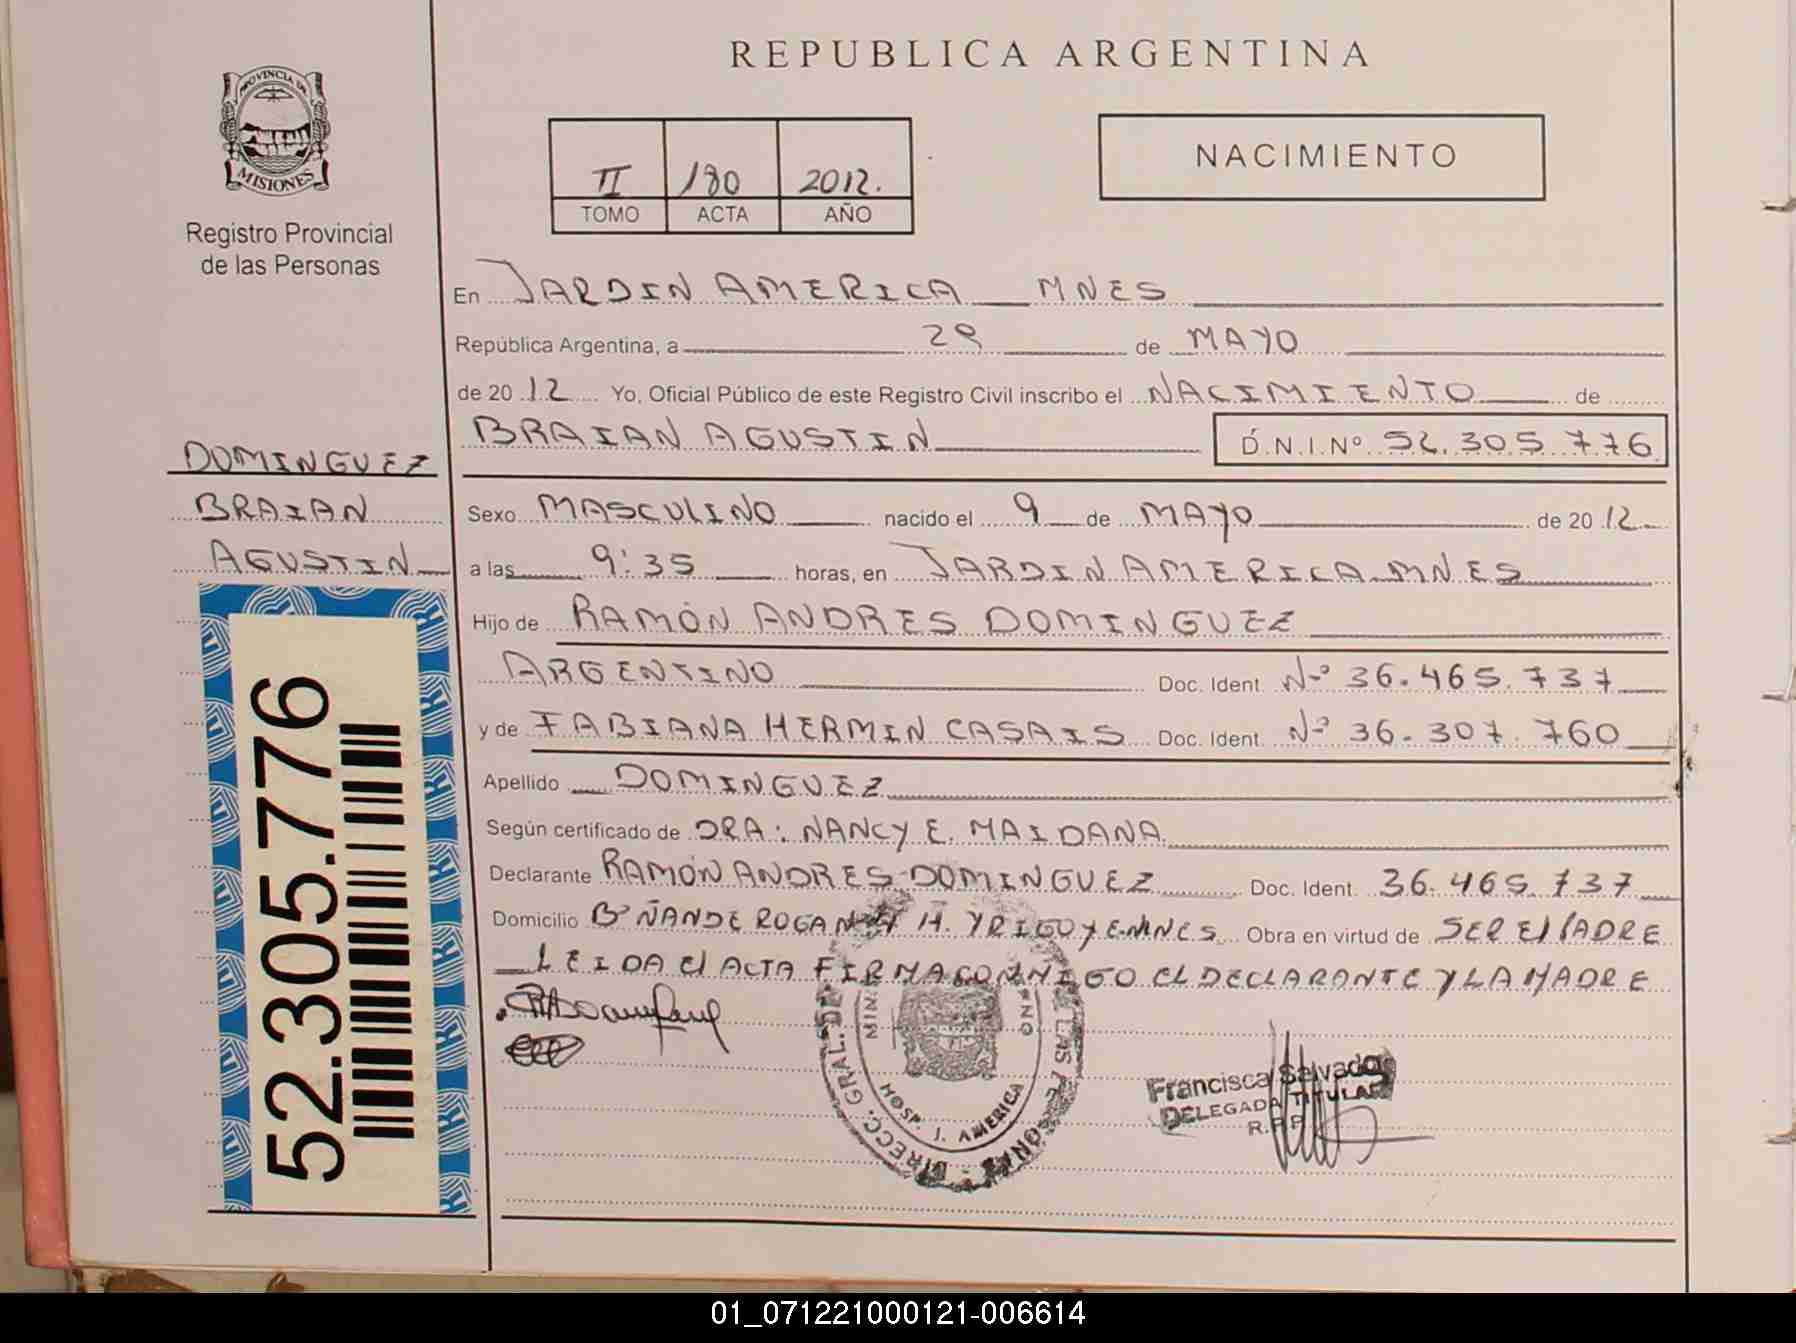 REPUBLICA ARGENTINA
PROVINCIA DE
MISIONES
Registro Provincial
de las Personas
II 180 2012.
TOMO ACTA AÑO
NACIMIENTO
En JARDIN AMERICA MNES
República Argentina, a 29 de MAYO
de 2012 Yo, Oficial Público de este Registro Civil inscribo el NACIMIENTO de
BRAIAN AGUSTIN D.N.I.Nº 52.305.776
DOMINGUEZ
BRAIAN
AGUSTIN
Sexo MASCULINO nacido el 9 de MAYO de 2012
a las 9:35 horas, en JARDIN AMERICA MNES
Hijo de RAMÓN ANDRES DOMINGUEZ
ARGENTINO Doc. Ident. Nº 36.465.737
y de FABIANA HERMIN CASAIS Doc. Ident. Nº 36.307.760
Apellido DOMINGUEZ
Según certificado de DRA: NANCY E. MAIDANA
Declarante RAMÓN ANDRES DOMINGUEZ Doc. Ident. 36.465.737
Domicilio Bº ÑANDEROGA H. YRIGOYEN MNES Obra en virtud de SER El PADRE
LEIDA El ACTA FIRMA CONMIGO EL DECLARANTE Y LA MADRE
52.305.776
DIRECC. GRAL. DE LAS PERSONAS
HOSP. J. AMERICA
Francisca Salvador
DELEGADA TITULAR
R.P.P.
01_071221000121-006614